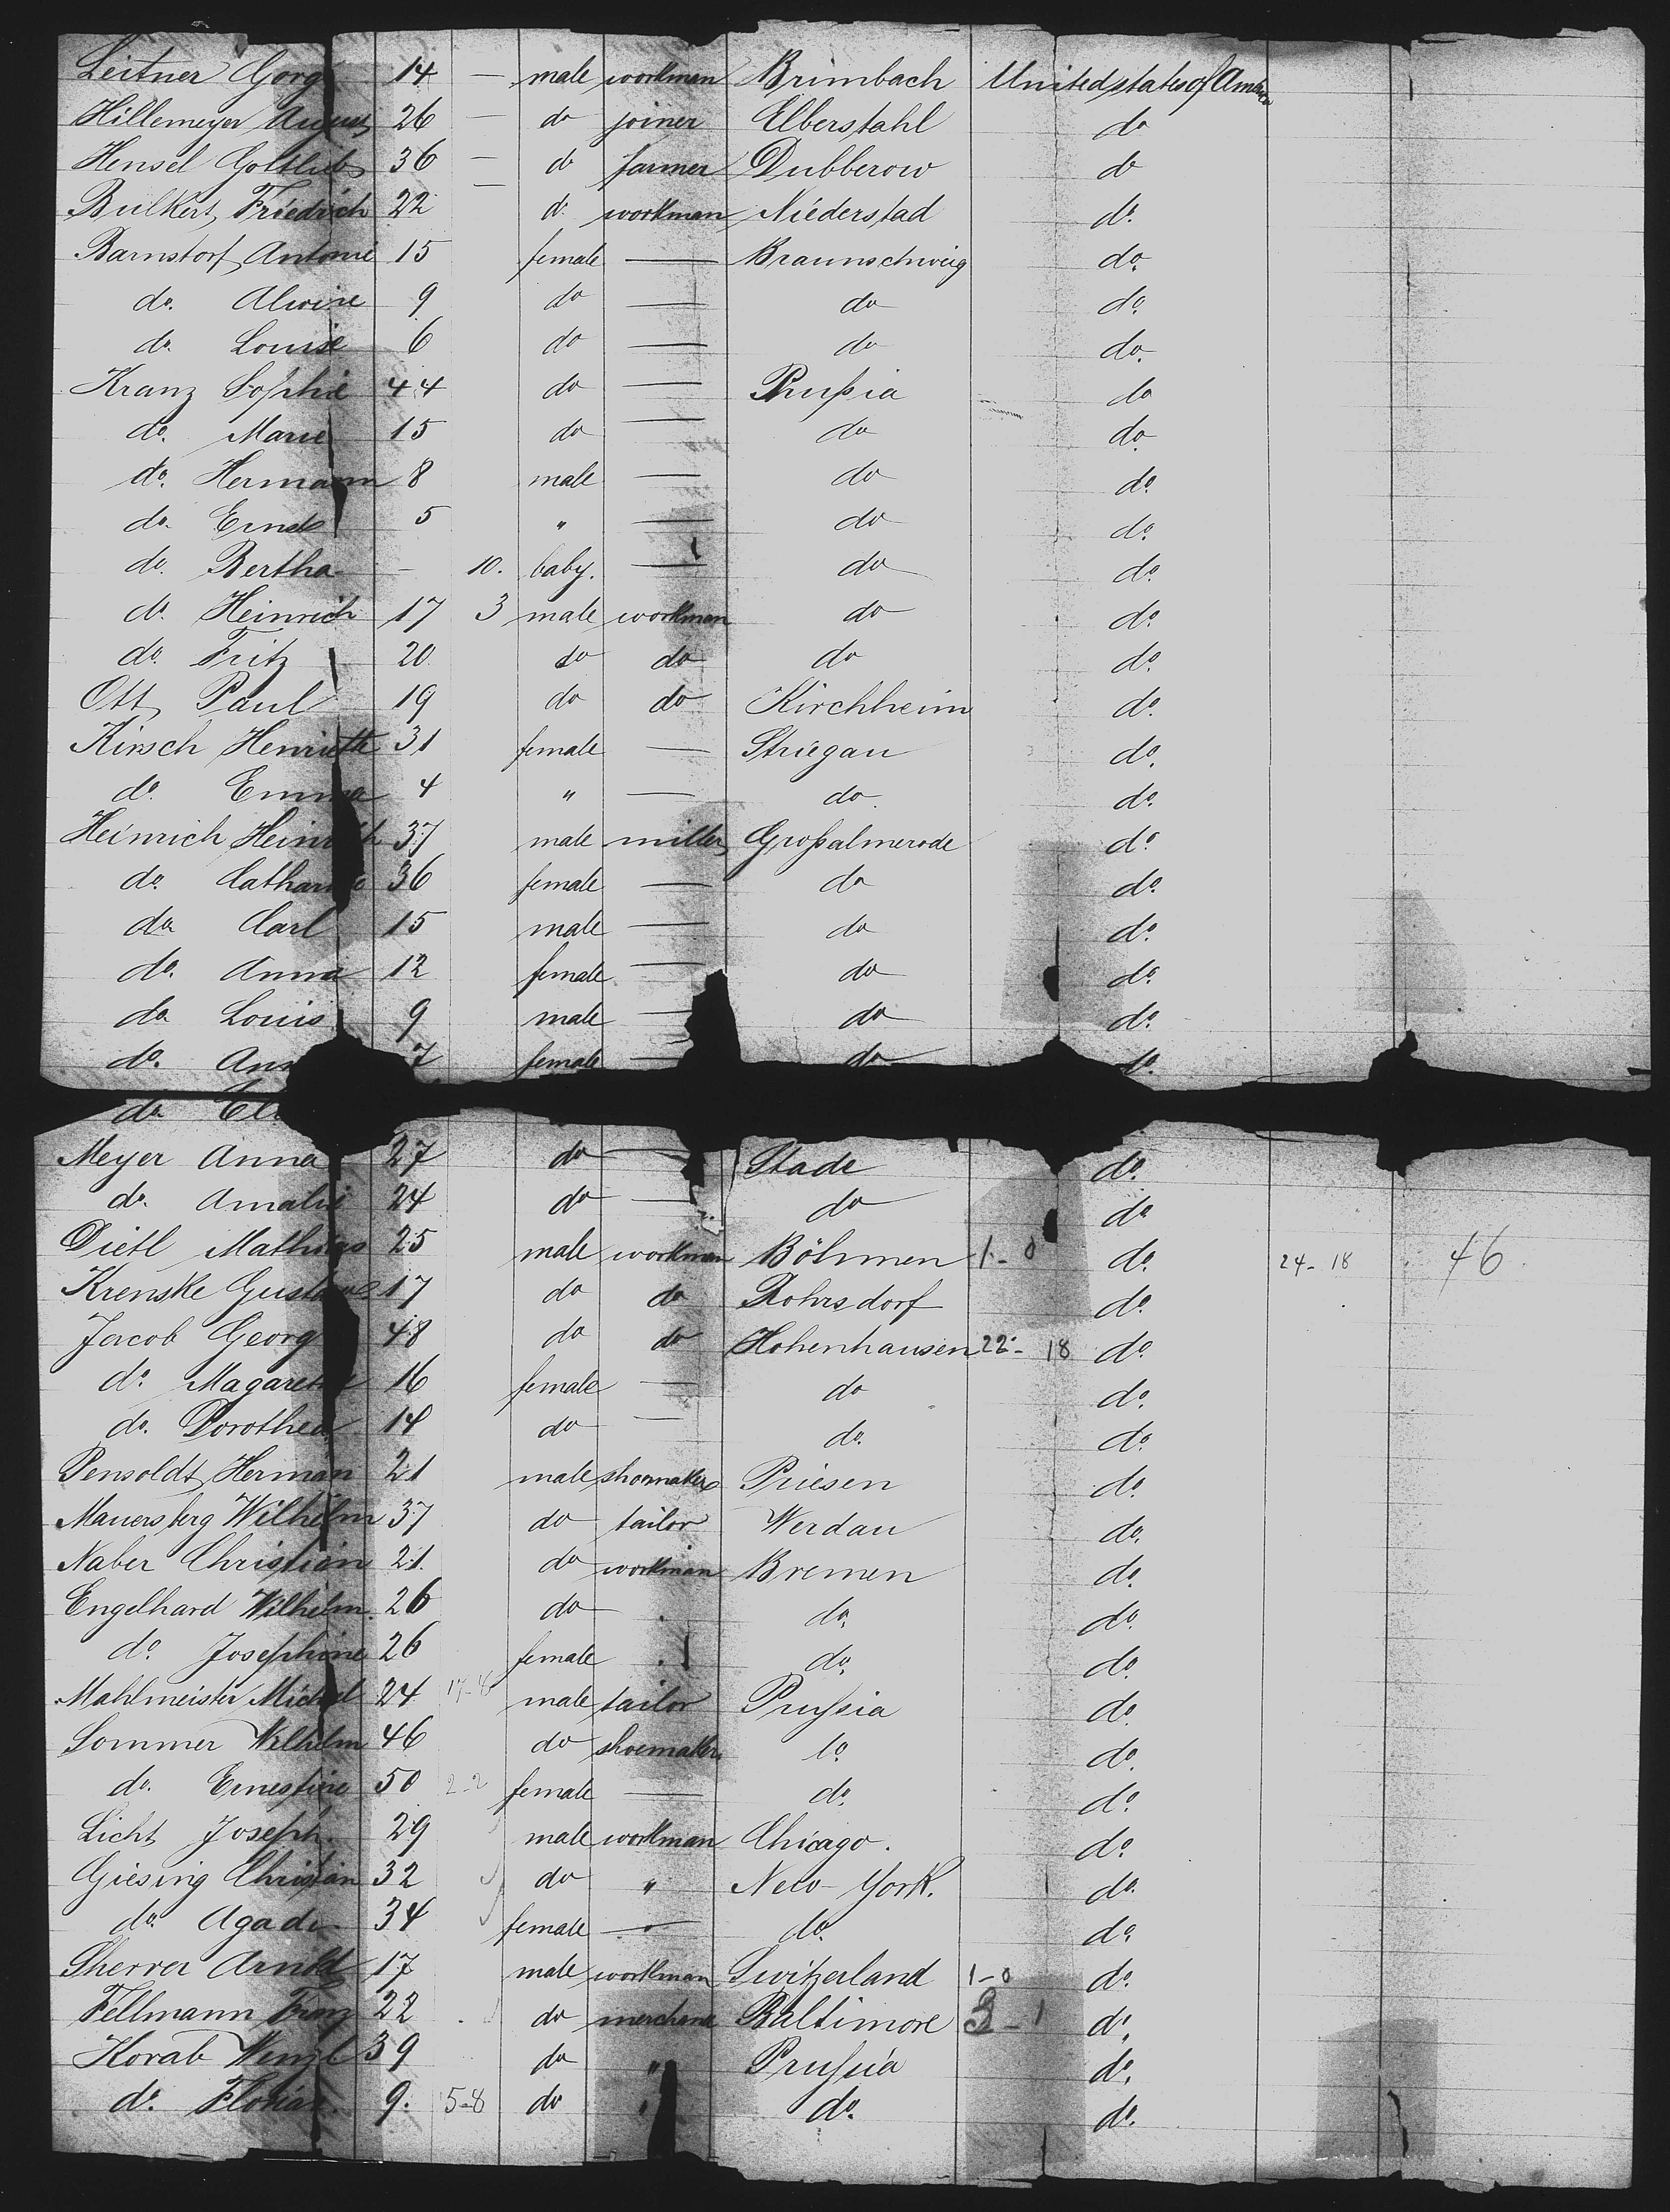 Leitner Gorg 14 — male workman Brimbach United states of America
Hillemeyer August 26 — do joiner Elberstahl do
Hensel Gottlieb 36 — do farmer Dubberow do
Bulkert, Friedrich 22 — do workman Niederstad do.
Barnstorf, Antonie 15 female — Braunschweig do.
do. Alwine 9 do — do do.
do. Louise 6 do — do do.
Kranz Sophie 44 do — Prußia do
do. Marie 15 do — do do.
do. Hermann 8 male — do do.
do. Ernst 5 " — do do.
do. Bertha — 10. baby. — do do.
do. Heinrich 17 3 male workman do do.
do. Fritz 20 do do do do.
Ott, Paul 19 do do Kirchheim do.
Kirsch Henriette 31 female — Striegau do.
do. Emma 4 " — do. do.
Heinrich Heinrich 37 male miller Großalmerode do.
do. Catharine 36 female — do do.
do. Carl 15 male — do do.
do. Anna 12 female — do do.
do Louis 9 male — do do.
do. Ann 7 female — do do.
do
Meyer Anna 27 do — Stade do.
do. Amalie 24 do — do do
Dietl Mathias 25 male workman Böhmen 1-0 do. 24-18 46
Krenske Gustave 17 do do Rohrsdorf do.
Jacob Georg 48 do do Hohenhausen 22-18 do.
do. Magarete 16 female — do do.
do. Dorothea 14 do — do. do.
Pensoldt, Herman 21 male shoemaker Priesen do.
Mauersberg Wilhelm 37 do tailor Werdau do.
Naber Christian 21. do workman Bremen do.
Engelhard Wilhelm. 26 do do. do.
do. Josephine 26 female do. do.
Mahlmeister Michel 24 17-8 male tailor Prußia do.
Sommer Wilhelm 46 do shoemaker do. do.
do. Ernestine 50 2-2 female — do. do.
Licht Joseph. 29 male workman Chicago. do.
Giesing Christian 32 do " New-York. do.
do. Agade 34 female — do. do.
Sherrer Arnold 17 male workman Switzerland 1-0 do.
Fellmann Franz 22 do merchant Baltimore 3-1 do.
Korab Wenzl 39 do " Prußia do.
do. Florian. 9. 5-8 do do. do.